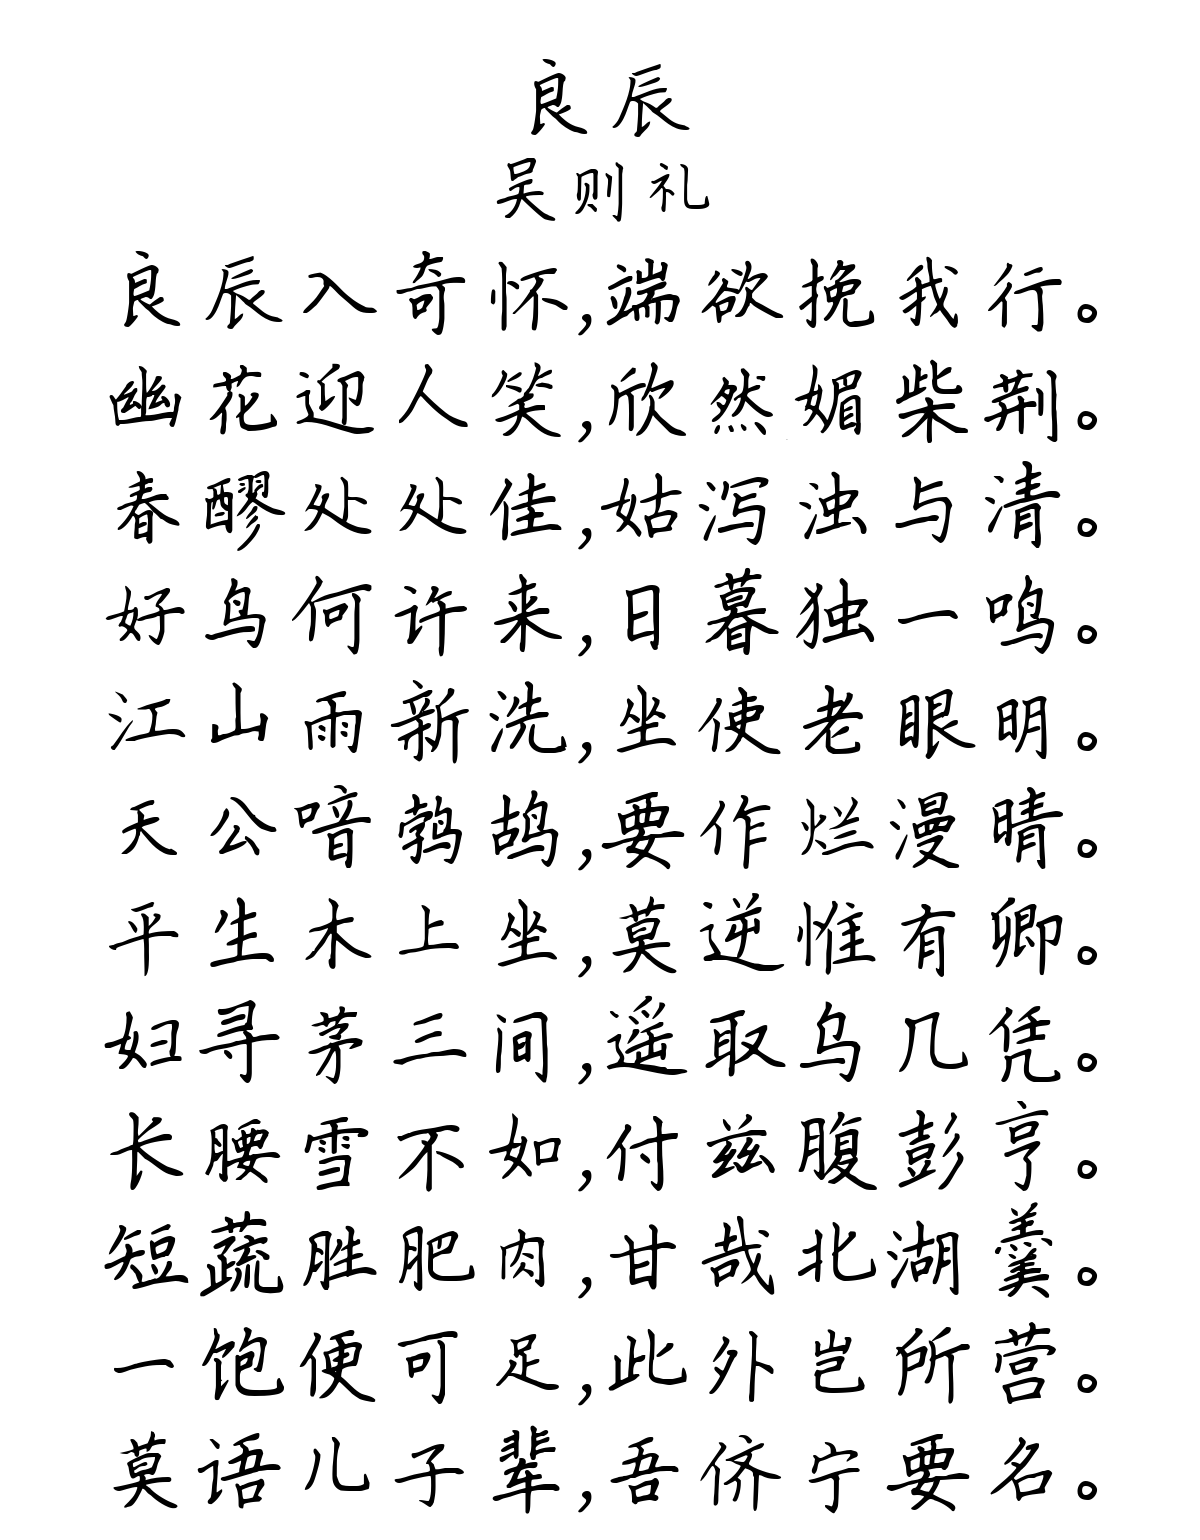 良辰
吴则礼
良辰入奇怀,端欲挽我行。
幽花迎人笑,欣然媚柴荆。
春醪处处佳,姑泻浊与清。
好鸟何许来,日暮独一鸣。
江山雨新洗,坐使老眼明。
天公喑鹁鸪,要作烂漫晴。
平生木上坐,莫逆惟有卿。
妇寻茅三间,遥取乌几凭。
长腰雪不如,付兹腹彭亨。
短蔬胜肥肉,甘哉北湖羹。
一饱便可足,此外岂所营。
莫语儿子辈,吾侪宁要名。